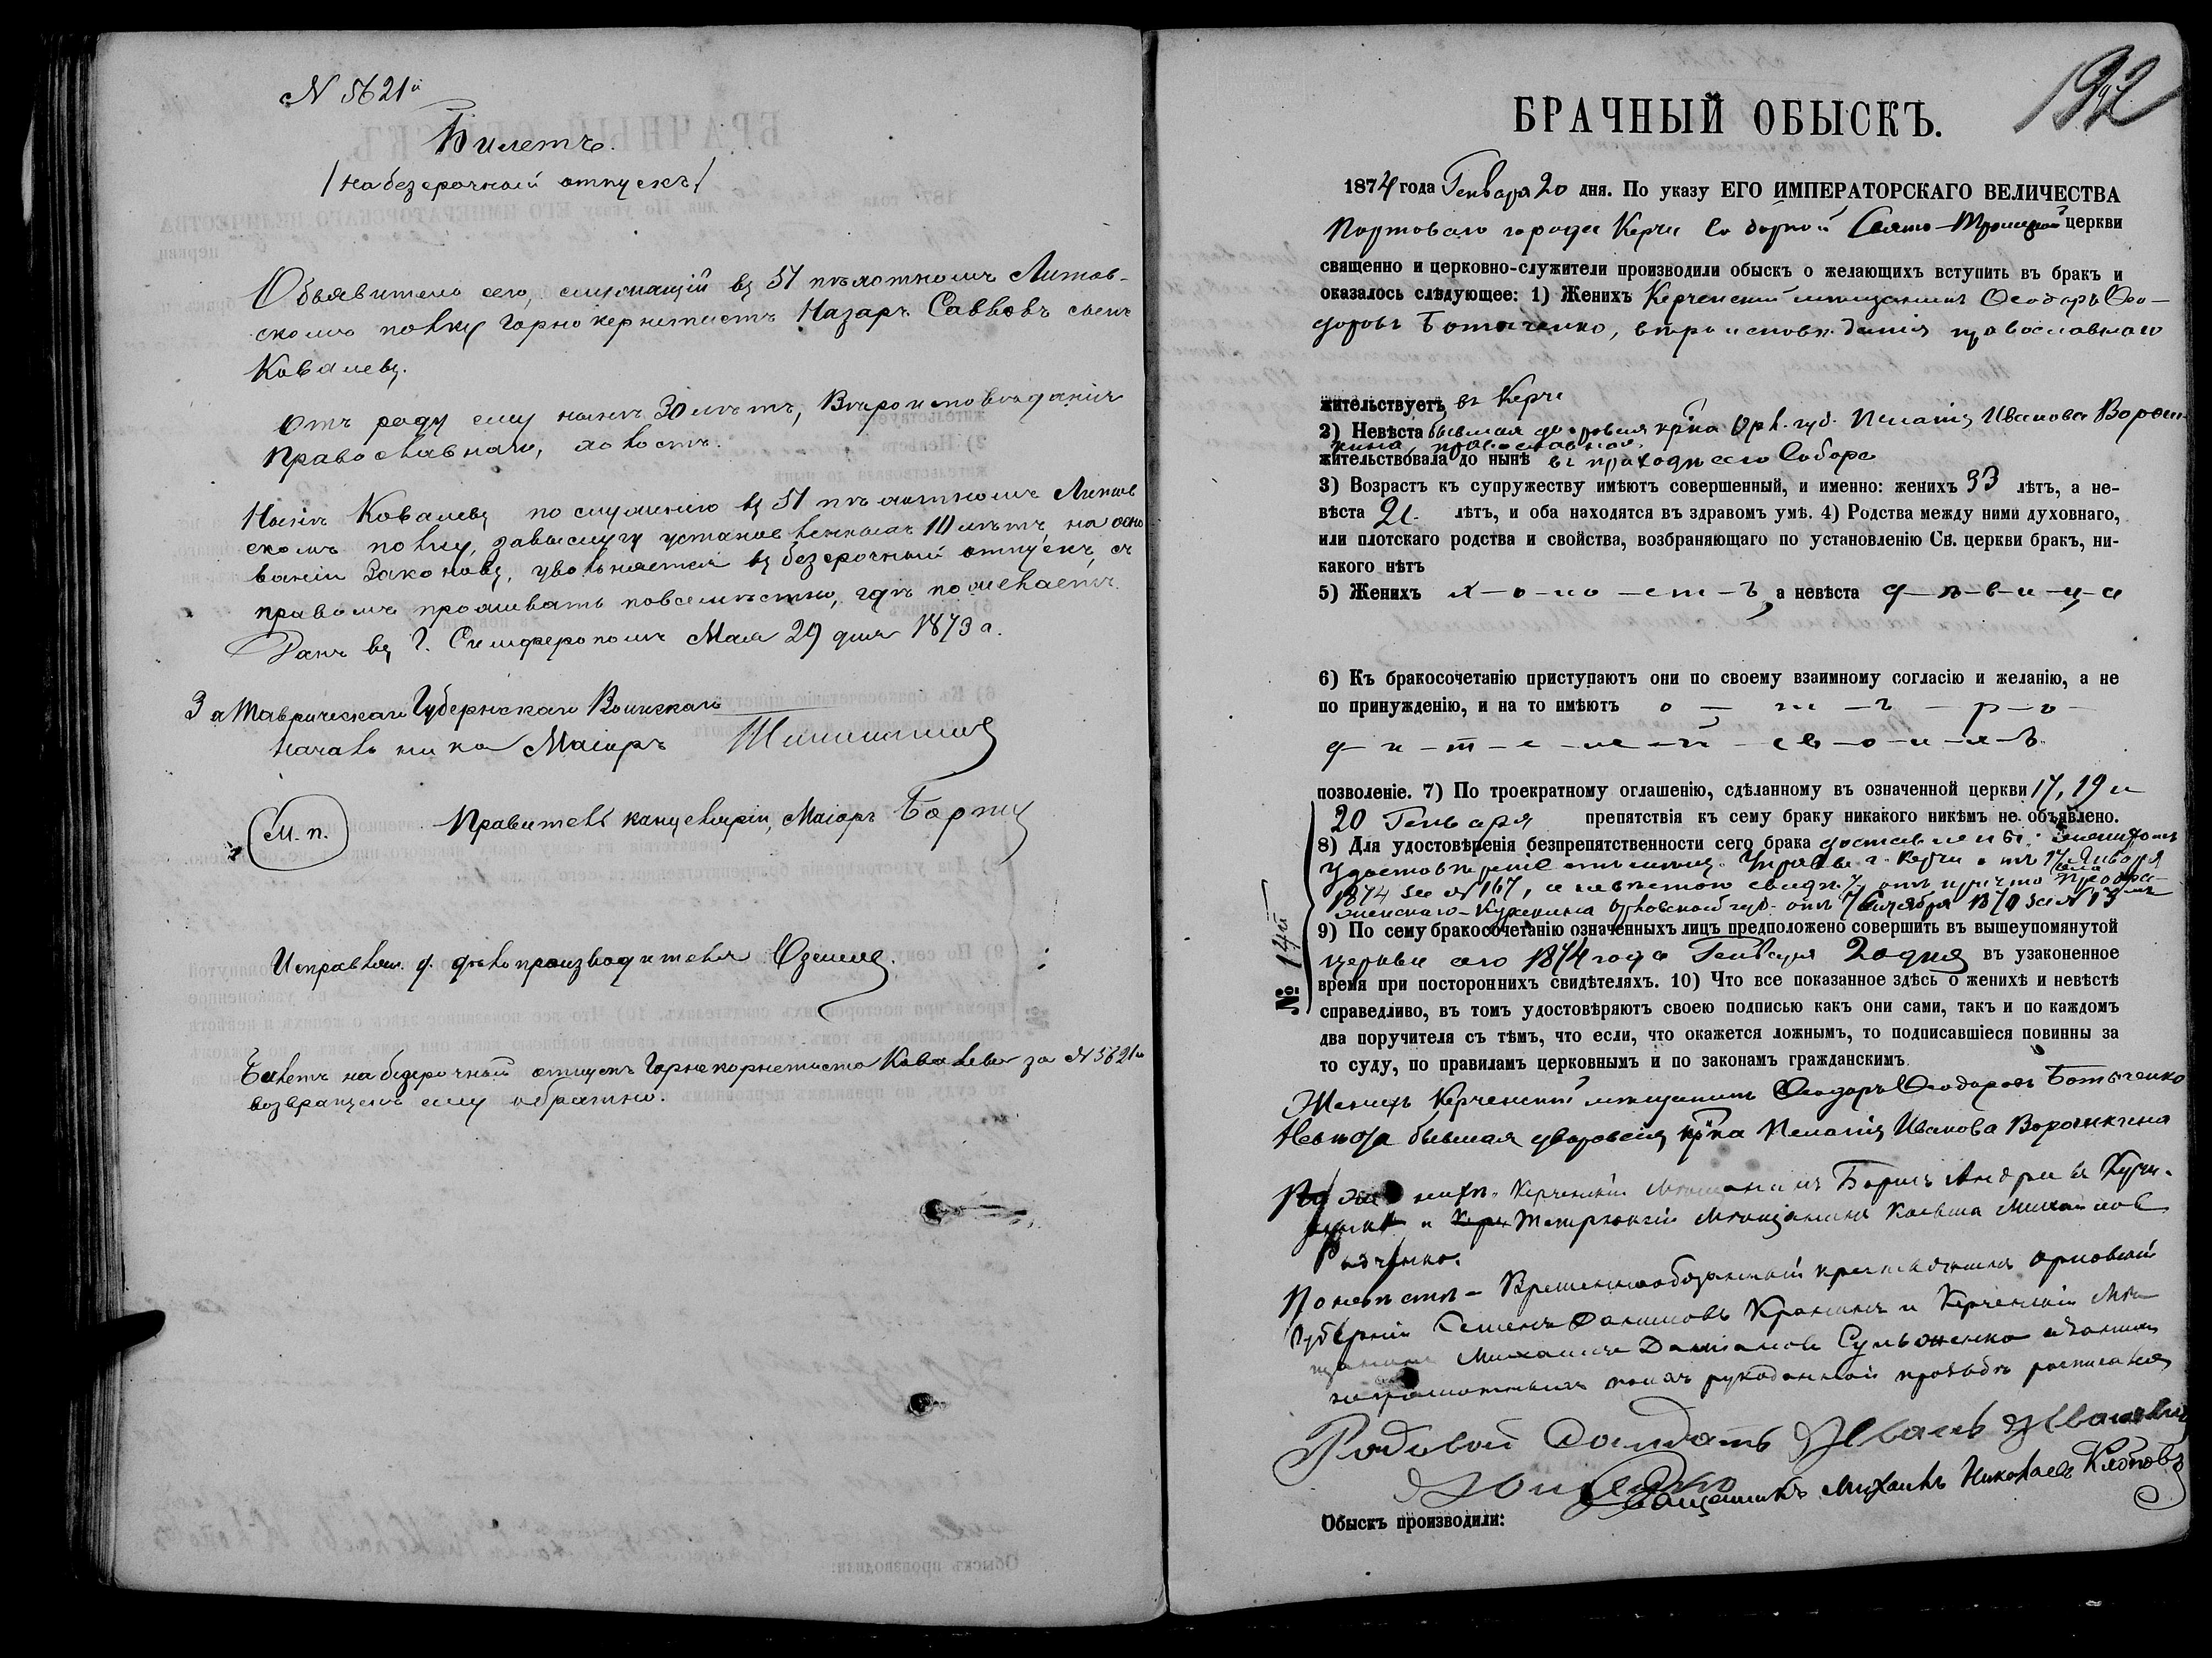 N 5621й
Билетъ.
/на безсрочный отпускъ/
Объявитель сего, служащій въ 51 пѣхотномъ Литов-
скомъ полку Горнокорнетистъ Назаръ Савовъ сынъ
Ковалевъ.
Отъ роду ему нынѣ 30 лѣтъ, Вѣроисповѣданія
Православнаго, холостъ.
Нынѣ Ковалевъ по служенію въ 51 пѣхотномъ Литов
скомъ полку, за выслугу установленныхъ 10 лѣтъ, на осно
ваніи Законовъ, увольняется въ безсрочный отпускъ, съ
правомъ проживать повсемѣстно, гдѣ пожелаетъ.
Данъ въ Г. Симферополѣ Мая 29 дня 1873 г.
За Таврическаго Губернскаго Воинскаго
Начальника Маіоръ
М. п.
Правитель канцеляріи, Маіоръ
Исправляю. д. дѣлопроизводителя
Билетъ на безсрочный отпускъ Горнокорнетиста Ковалева за N 5621й
возвращенъ ему обратно.
192
БРАЧНЫЙ ОБЫСКЪ.
1874 года Генваря 20 дня. По указу ЕГО ИМПЕРАТОРСКАГО ВЕЛИЧЕСТВА
Портоваго города Керчи Соборной Свято-Троицкой церкви
священно и церковно-служители производили обыскъ о желающихъ вступить въ бракъ и
оказалось слѣдующее: 1) Женихъ Керченскій мѣщанинъ Ѳеодоръ Ѳео-
доровъ Ботыченко, вѣроисповѣданія православнаго
жительствуетъ въ Керчи
2) Невѣста бывшая дворовая кр-ка Орл. губ. Пелагія Иванова Ворон-
кина, православная,
жительствовала до нынѣ въ приходѣ сего Собора
3) Возрастъ къ супружеству имѣютъ совершенный, и именно: женихъ 33 лѣтъ, а не-
вѣста 21. лѣтъ, и оба находятся въ здравомъ умѣ. 4) Родства между ними духовнаго,
или плотскаго родства и свойства, возбраняющаго по установленію Св. церкви бракъ, ни-
какого нѣтъ
5) Женихъ х-о-ло-ст-ъ, а невѣста д-ѣ-в-и-ц-а
6) Къ бракосочетанію приступаютъ они по своему взаимному согласію и желанію, а не
по принужденію, и на то имѣютъ о-т-ъ-р-о-
д-и-т-е-ле-й-св-о-и-х-ъ
позволеніе. 7) По троекратному оглашенію, сдѣланному въ означенной церкви 17, 19 и
20 Генваря препятствія къ сему браку никакого никѣмъ не объявлено.
8) Для удостовѣренія безпрепятственности сего брака доставлены: женихомъ
удостовѣреніе отъ мѣщ. Управы г. Керчи отъ 17 Января
1874 за N 167, а невѣстою свид. отъ причта села Преобра-
женскаго-Куракина Орловской губ. отъ 7 Сентября 1870 за N 13
9) По сему бракосочетанію означенныхъ лицъ предположено совершить въ вышеупомянутой
церкви сего 1874 года Генваря 20 дня въ узаконенное
время при постороннихъ свидѣтеляхъ. 10) Что все показанное здѣсь о женихѣ и невѣстѣ
справедливо, въ томъ удостовѣряютъ своею подписью какъ они сами, такъ и по каждомъ
два поручителя съ тѣмъ, что если, что окажется ложнымъ, то подписавшіеся повинны за
то суду, по правиламъ церковнымъ и по законамъ гражданскимъ.
№ 14й
Женихъ Керченскій мѣщанинъ Ѳеодоръ Ѳеодоровъ Ботыченко
Невѣста бывшая дворовая кр-ка Пелагія Иванова Воронкина
По женихѣ. Керченскій мѣщанинъ Борисъ Андреевъ
и Темрюкскій мѣщанинъ Касьянъ Михайловъ
Радченко.
По невѣстѣ - Временнообязанный крестьянинъ Орловской
Губерніи Семенъ Даниловъ и Керченскій мѣ-
щанинъ Михаилъ Даміановъ а за нихъ
неграмотныхъ по ихъ рукоданной прозьбѣ росписался
Рядовой Солдатъ Иванъ Ивановъ
Священникъ Михаилъ Николаевъ
Обыскъ производили: